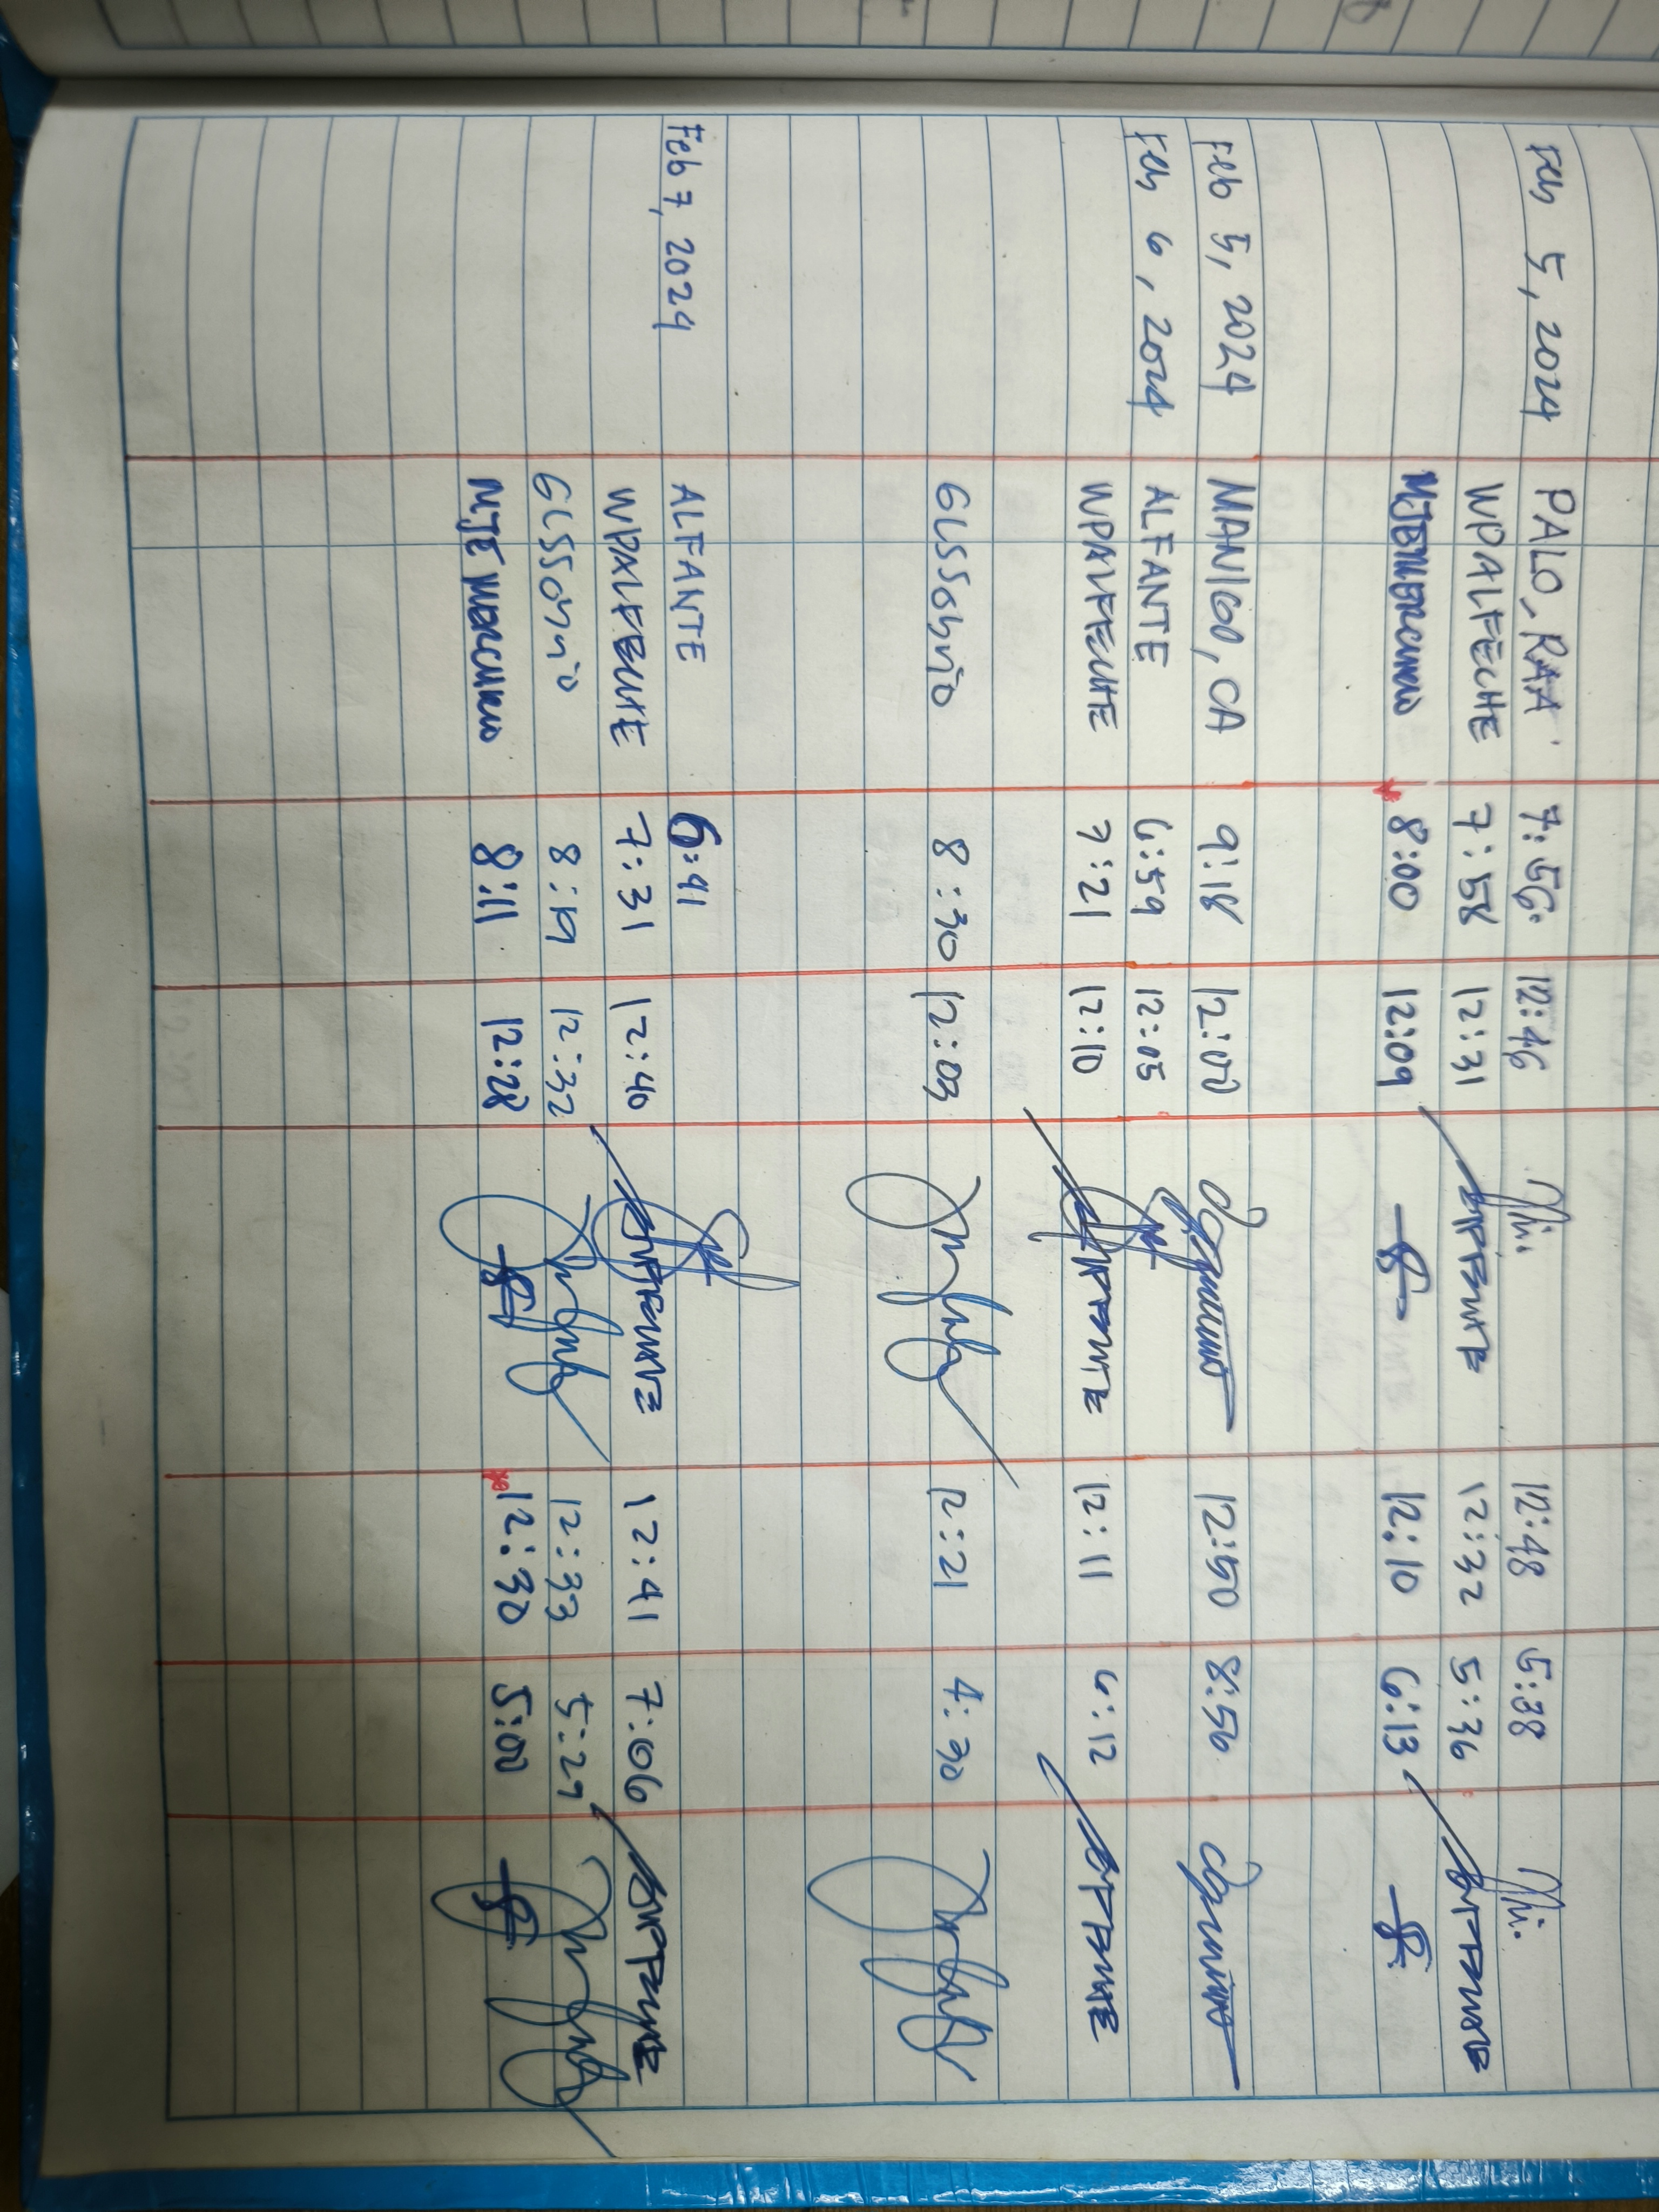 Feb 5, 2024 PALO, RAA 7:56 12:46 12:48 5:38
WPALFECHE 7:58 12:31 12:32 5:36
MJEMercurio 8:00 12:09 12:10 6:13
Feb 5, 2024 MANIGO, CA 9:18 12:00 12:50 8:56
Feb 6, 2024 ALFANTE 6:59 12:05
WPALFECHE 7:21 12:10 12:11 6:12
GLSSosnio 8:30 12:03 12:21 4:30
Feb 7, 2024 ALFANTE 6:41
WPALFECHE 7:31 12:40 12:41 7:06
GLSSosnio 8:19 12:32 12:33 5:29
MJE Mercurio 8:11 12:28 12:30 5:00